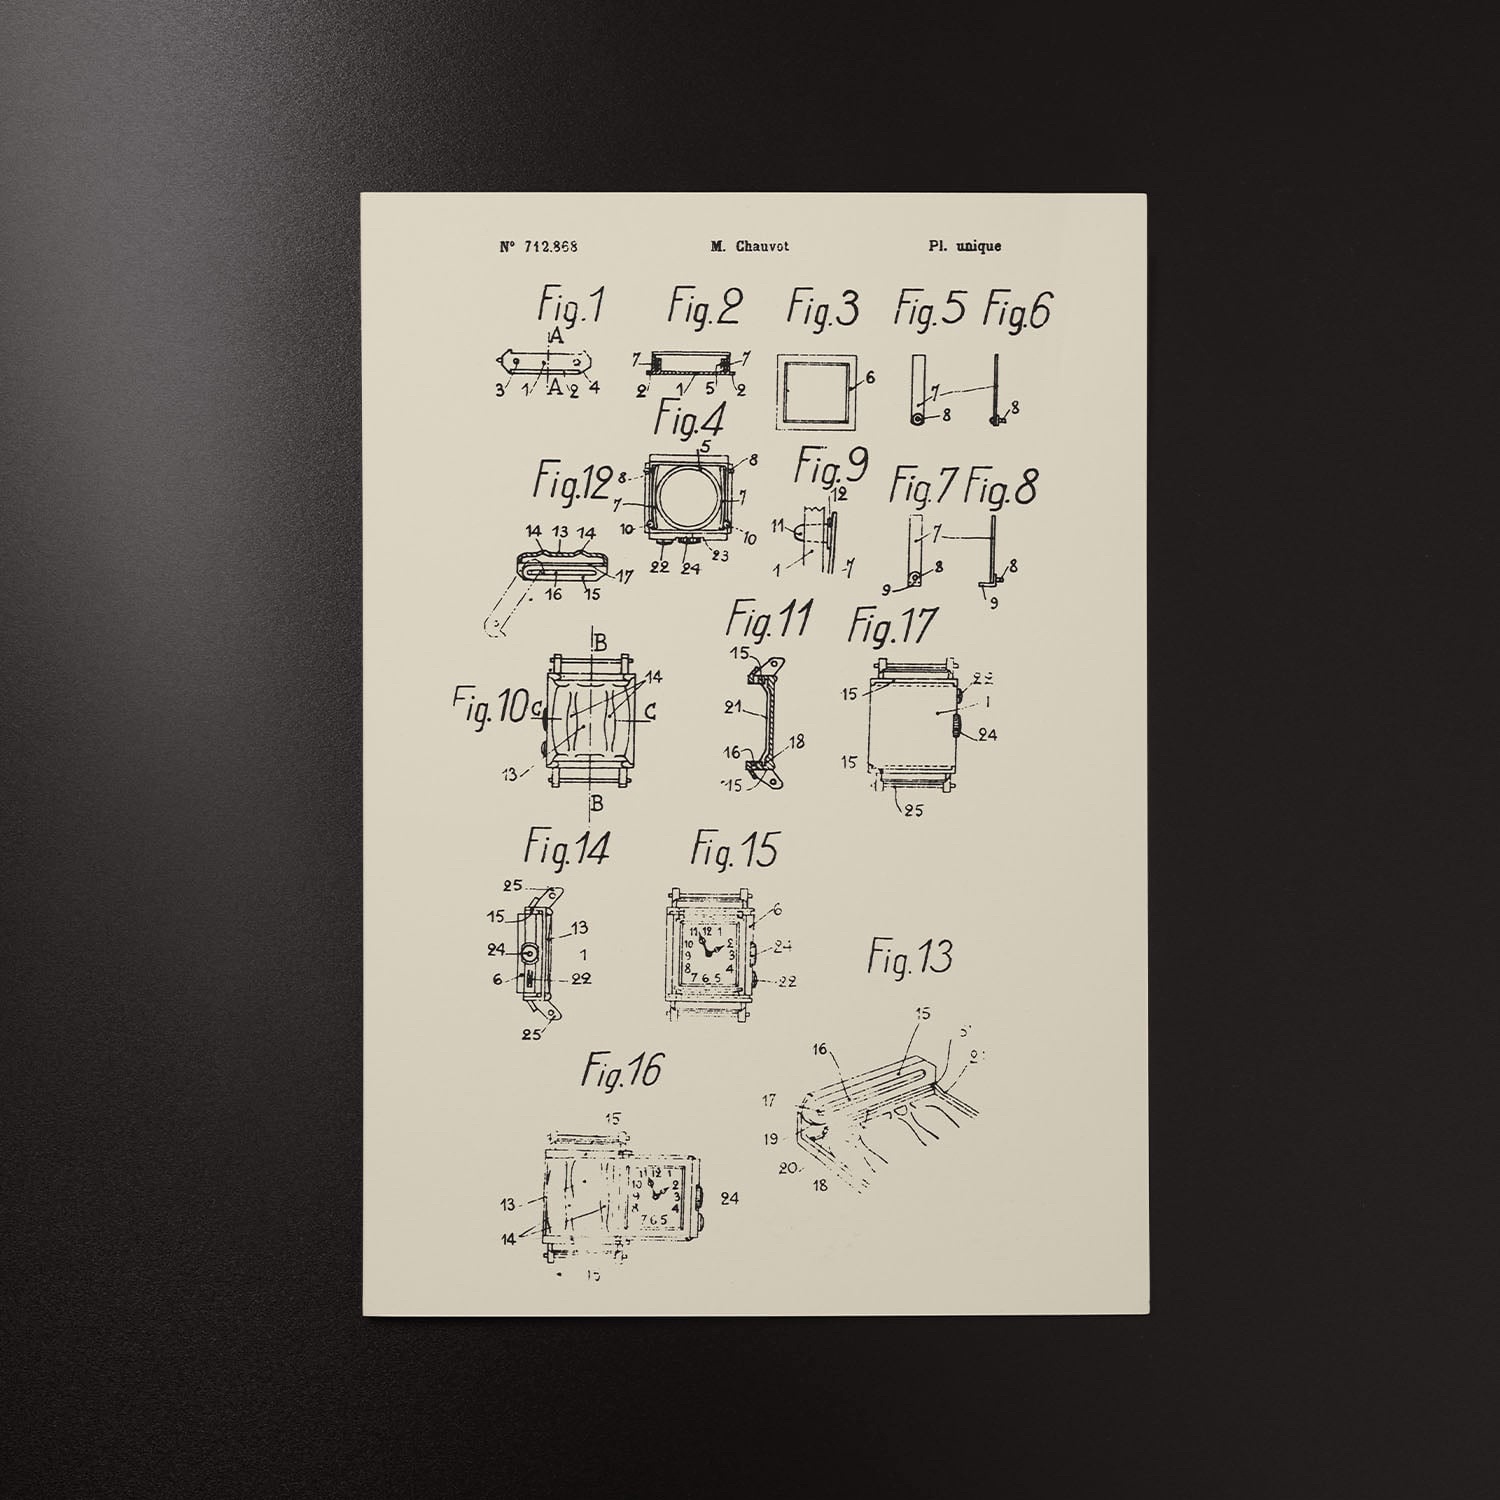 Nº 712.868 M. Chauvot Pl. unique
Fig.1 Fig.2 Fig.3 Fig.5 Fig.6
A
7 7
6
3 1 A 2 4
2 1 5 2
7
8 8
Fig.4
5
Fig.12 8 8 Fig.9 Fig.7 Fig.8
12
7 7
10 10
11
7
14 13 14
22 24 23
1 7
8 8
17
16 15
9 9
Fig.11 Fig.17
B
15
14
22
15
Fig.10 C C
21
1
24
18
16
15
13
15
B
25
Fig.14 Fig.15
25
15
13
6
11 12 1
10 2
9 3
8 4
7 6 5
24
1
24
6 22
22
25
Fig.13
15
16
Fig.16
17
15
19
11 12 1
10 2
9 3
8 4
7 6 5
20
18
13
24
14